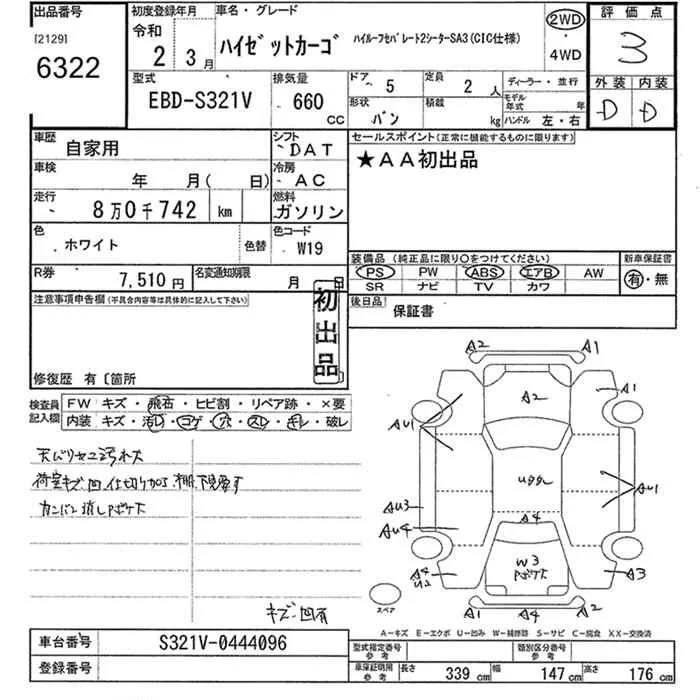 出品番号 初度登録年月 車名・グレード 評価点
[2129] 令和 2WD
6322 2 3月 ハイゼットカーゴ ハイルーフセパレート2シーターSA3(CIC仕様) ・ 3
4WD
型式 排気量 ドア 5 定員 2 人 ディーラー・並行 外装 内装
EBD-S321V 660 CC 形状 バン 積載 kg モデル年式 年 D D
ハンドル 左・右
車歴 自家用 シフト DAT セールスポイント(正常に機能するものに限ります)
★AA初出品
車検 年 月( 日) 冷房 AC
走行 8万0千742 km 燃料 ガソリン
色 ホワイト 色替 色コード W19
装備品(純正品に限り○をつけてください) 新車保証書
R券 7,510円 名変通知期限 月 日 PS PW ABS エアB AW 有・無
SR ナビ TV カワ
注意事項申告欄(不具合内容等は具体的に記入して下さい) 初出品 後日品 保証書
修復歴 有〔箇所
検査員記入欄 FW キズ・飛石・ヒビ割・リペア跡・×要
内装 キズ・汚レ・コゲ・穴・スレ・キレ・破レ
A2 A1
A2 A1
AU1
天バリ
荷室キズ凹
AU3 AU1
A4
AU4
W3
A4 A3
キズ凹有 スペア A1 A4 A2
A-キズ E-エクボ U-凹み W-補修跡 S-サビ C-腐食 XX-交換済
車台番号 S321V-0444096 型式指定番号 参考 類別区分番号 参考
登録番号 車庫証明用 参考 長さ 339 cm 幅 147 cm 高さ 176 cm